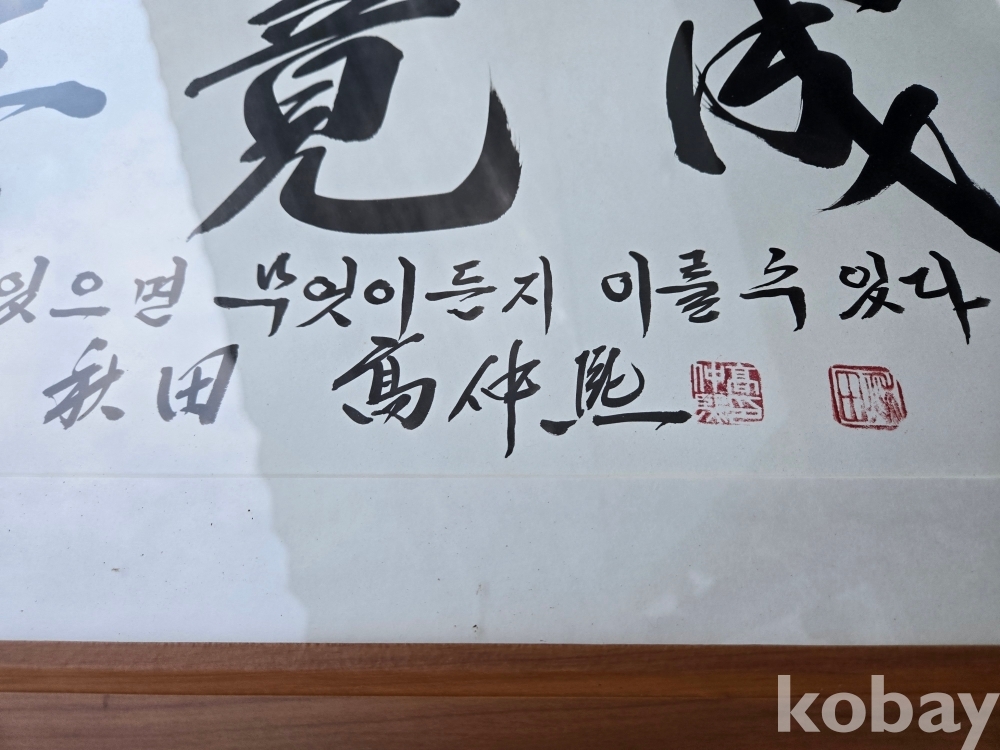 竟成
있으면 무엇이든지 이룰수 있다
秋田 高仲熙
kobay